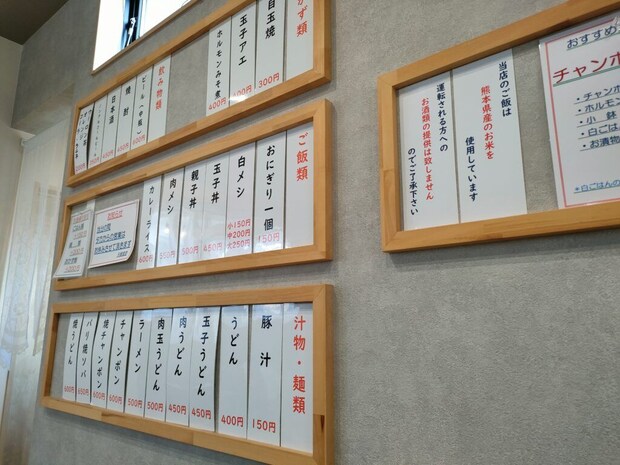 かず類
目玉焼
300円
玉子アエ
400円
ホルモンみそ煮
400円
飲み物類
ビール(中瓶)
焼酎
日本酒
ご飯類
おにぎり一個
150円
白メシ
小150円
中200円
大250円
玉子丼
450円
親子丼
500円
肉メシ
500円
カレーライス
600円
お知らせ
汁物・麺類
豚汁
150円
うどん
400円
玉子うどん
450円
肉うどん
450円
肉玉うどん
500円
ラーメン
500円
チャンポン
600円
焼チャンポン
600円
バリ焼ソバ
650円
焼うどん
600円
当店のご飯は
熊本県産のお米を
使用しています
運転される方への
お酒類の提供は致しません
のでご了承下さい
おすすめ
チャンポ
・チャンポ
・ホルモン
・小鉢
・白ごはん
・お漬物
*白ごはんの